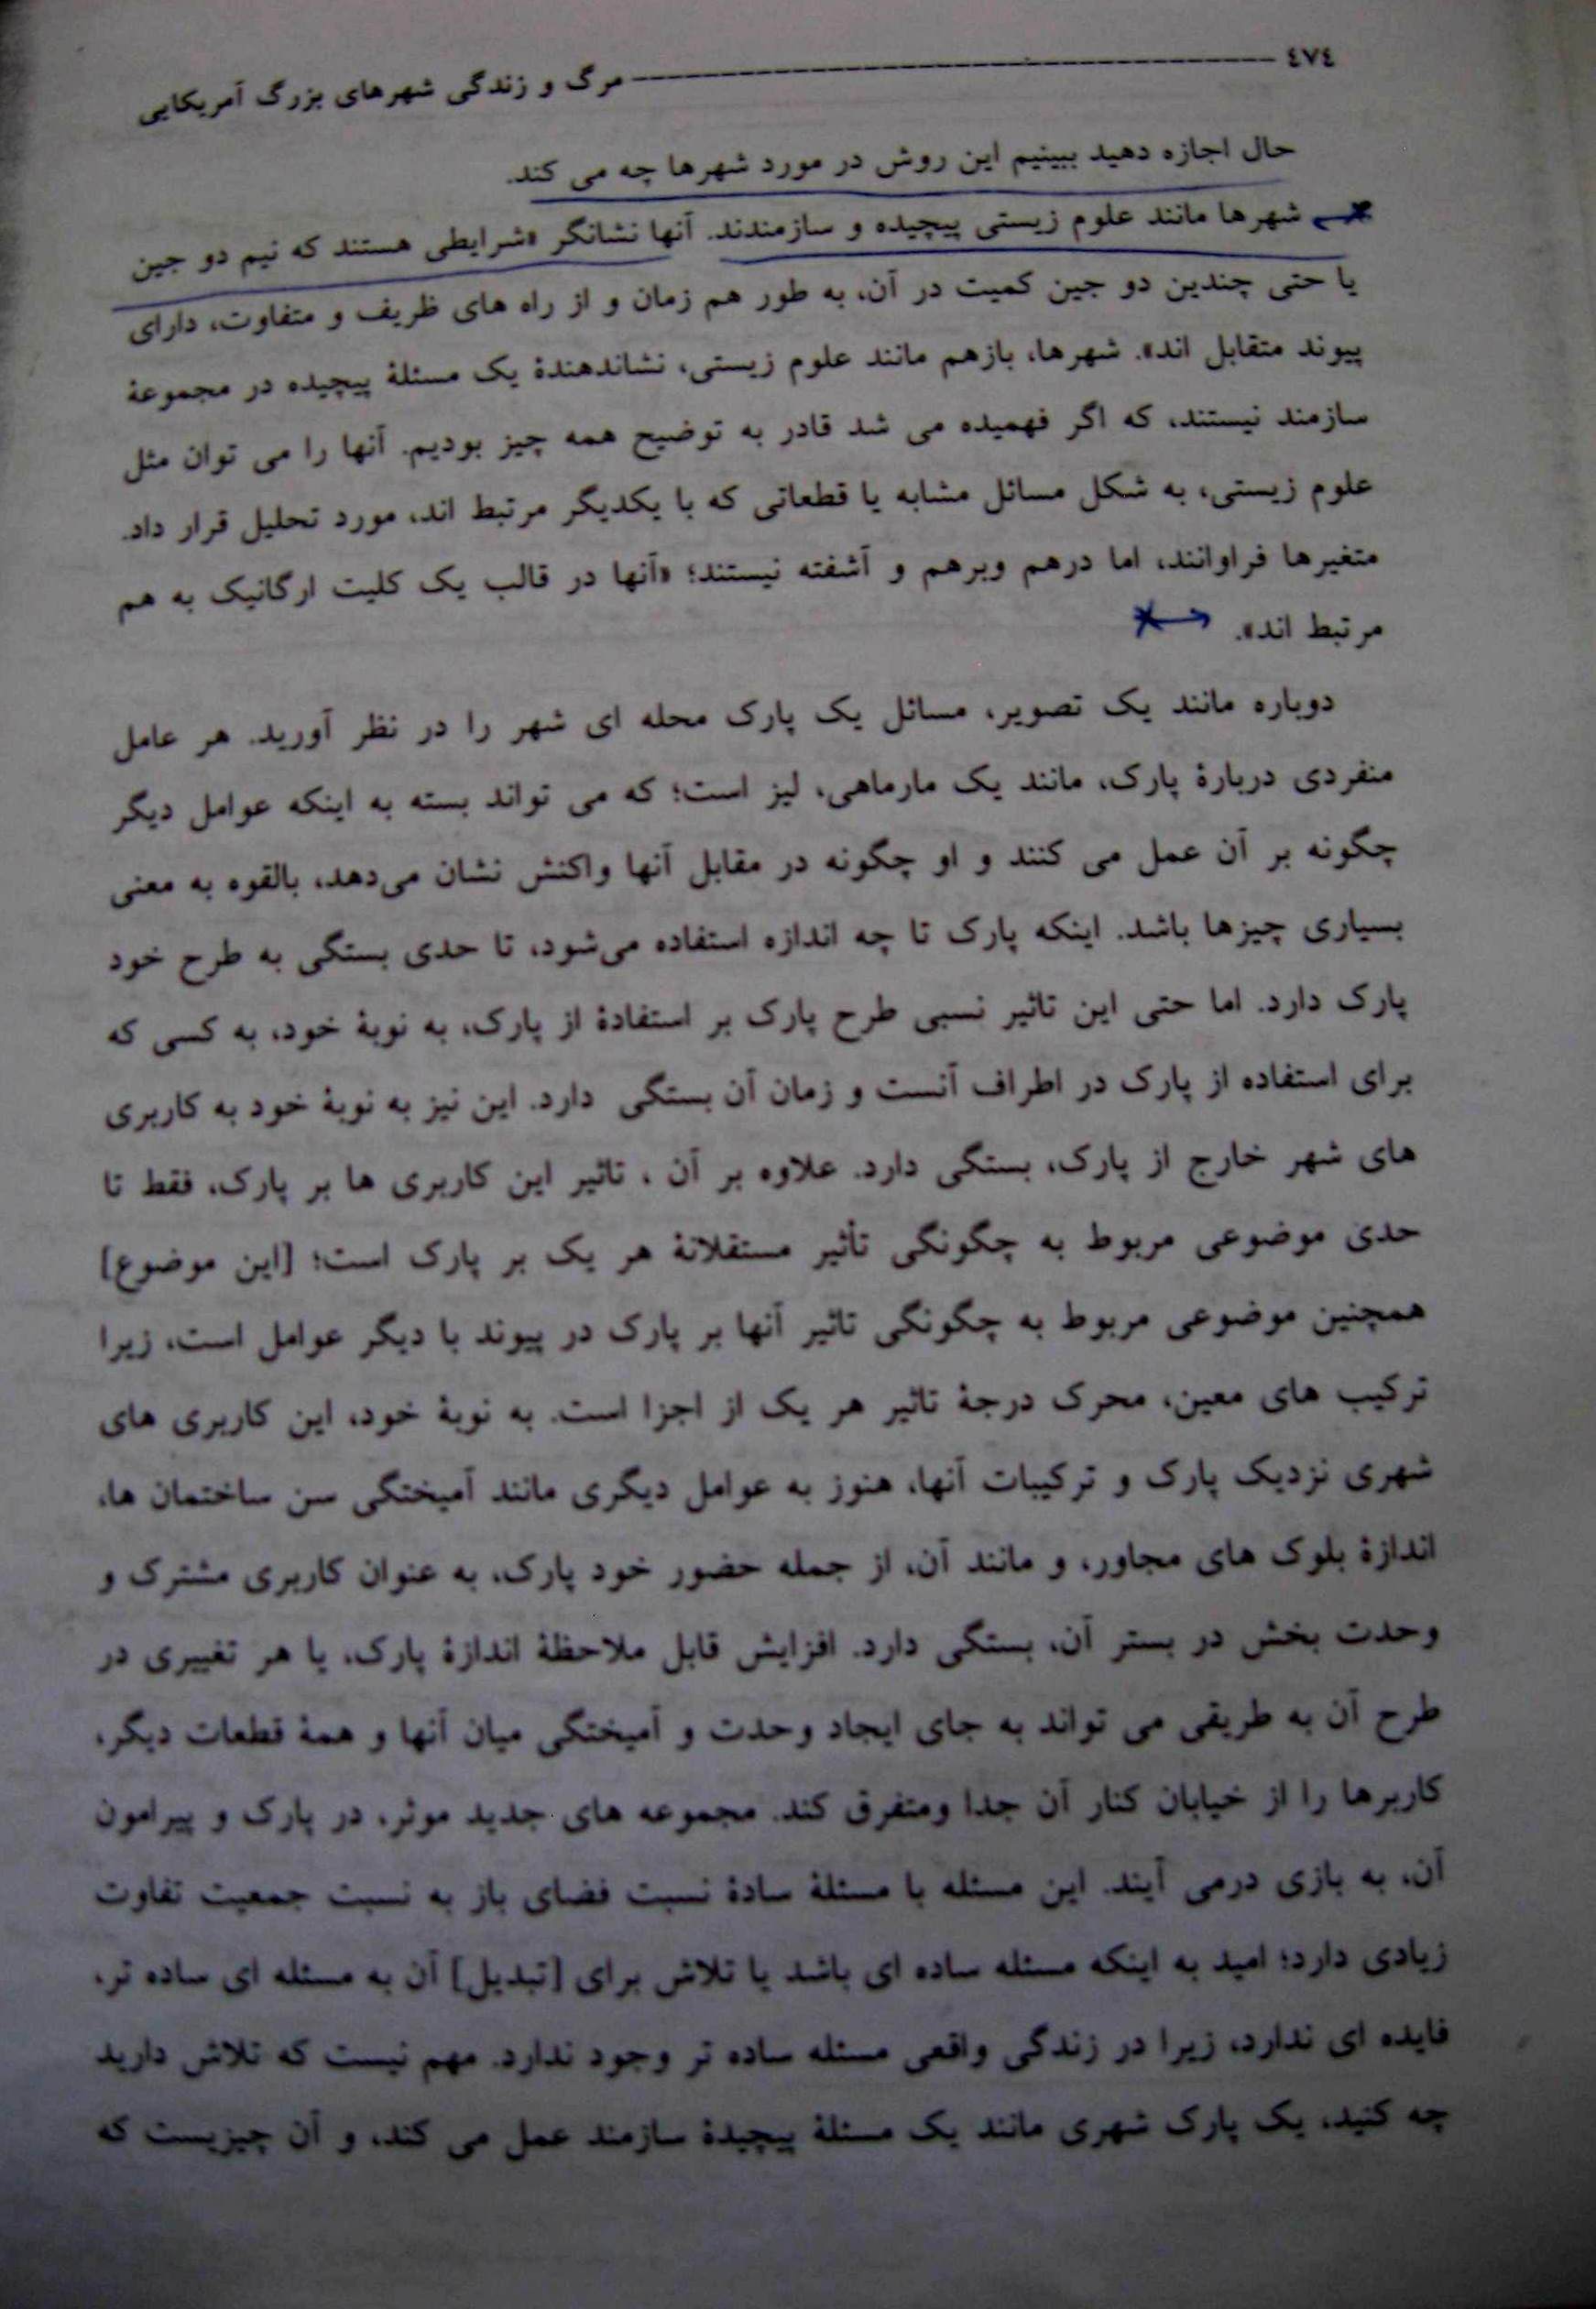 ٤٧٤ مرگ و زندگی شهرهای بزرگ آمریکایی
حال اجازه دهید ببینیم این روش در مورد شهرها چه می کند.
شهرها مانند علوم زیستی پیچیده و سازمندند. آنها نشانگر «شرایطی هستند که نیم دو جین
یا حتی چندین دو جین کمیت در آن، به طور هم زمان و از راه های ظریف و متفاوت، دارای
پیوند متقابل اند». شهرها، بازهم مانند علوم زیستی، نشاندهندهٔ یک مسئلهٔ پیچیده در مجموعهٔ
سازمند نیستند، که اگر فهمیده می شد قادر به توضیح همه چیز بودیم. آنها را می توان مثل
علوم زیستی، به شکل مسائل مشابه یا قطعاتی که با یکدیگر مرتبط اند، مورد تحلیل قرار داد.
متغیرها فراوانند، اما درهم وبرهم و آشفته نیستند؛ «آنها در قالب یک کلیت ارگانیک به هم
مرتبط اند».
دوباره مانند یک تصویر، مسائل یک پارک محله ای شهر را در نظر آورید. هر عامل
منفردی دربارهٔ پارک، مانند یک مارماهی، لیز است؛ که می تواند بسته به اینکه عوامل دیگر
چگونه بر آن عمل می کنند و او چگونه در مقابل آنها واکنش نشان می‌دهد، بالقوه به معنی
بسیاری چیزها باشد. اینکه پارک تا چه اندازه استفاده می‌شود، تا حدی بستگی به طرح خود
پارک دارد. اما حتی این تاثیر نسبی طرح پارک بر استفادهٔ از پارک، به نوبهٔ خود، به کسی که
برای استفاده از پارک در اطراف آنست و زمان آن بستگی دارد. این نیز به نوبهٔ خود به کاربری
های شهر خارج از پارک، بستگی دارد. علاوه بر آن ، تاثیر این کاربری ها بر پارک، فقط تا
حدی موضوعی مربوط به چگونگی تأثیر مستقلانهٔ هر یک بر پارک است؛ [این موضوع]
همچنین موضوعی مربوط به چگونگی تاثیر آنها بر پارک در پیوند با دیگر عوامل است، زیرا
ترکیب های معین، محرک درجهٔ تاثیر هر یک از اجزا است. به نوبهٔ خود، این کاربری های
شهری نزدیک پارک و ترکیبات آنها، هنوز به عوامل دیگری مانند آمیختگی سن ساختمان ها،
اندازهٔ بلوک های مجاور، و مانند آن، از جمله حضور خود پارک، به عنوان کاربری مشترک و
وحدت بخش در بستر آن، بستگی دارد. افزایش قابل ملاحظهٔ اندازهٔ پارک، یا هر تغییری در
طرح آن به طریقی می تواند به جای ایجاد وحدت و آمیختگی میان آنها و همهٔ قطعات دیگر،
کاربرها را از خیابان کنار آن جدا ومتفرق کند. مجموعه های جدید موثر، در پارک و پیرامون
آن، به بازی درمی آیند. این مسئله با مسئلهٔ سادهٔ نسبت فضای باز به نسبت جمعیت تفاوت
زیادی دارد؛ امید به اینکه مسئله ساده ای باشد یا تلاش برای [تبدیل] آن به مسئله ای ساده تر،
فایده ای ندارد، زیرا در زندگی واقعی مسئله ساده تر وجود ندارد. مهم نیست که تلاش دارید
چه کنید، یک پارک شهری مانند یک مسئلهٔ پیچیدهٔ سازمند عمل می کند، و آن چیزیست که